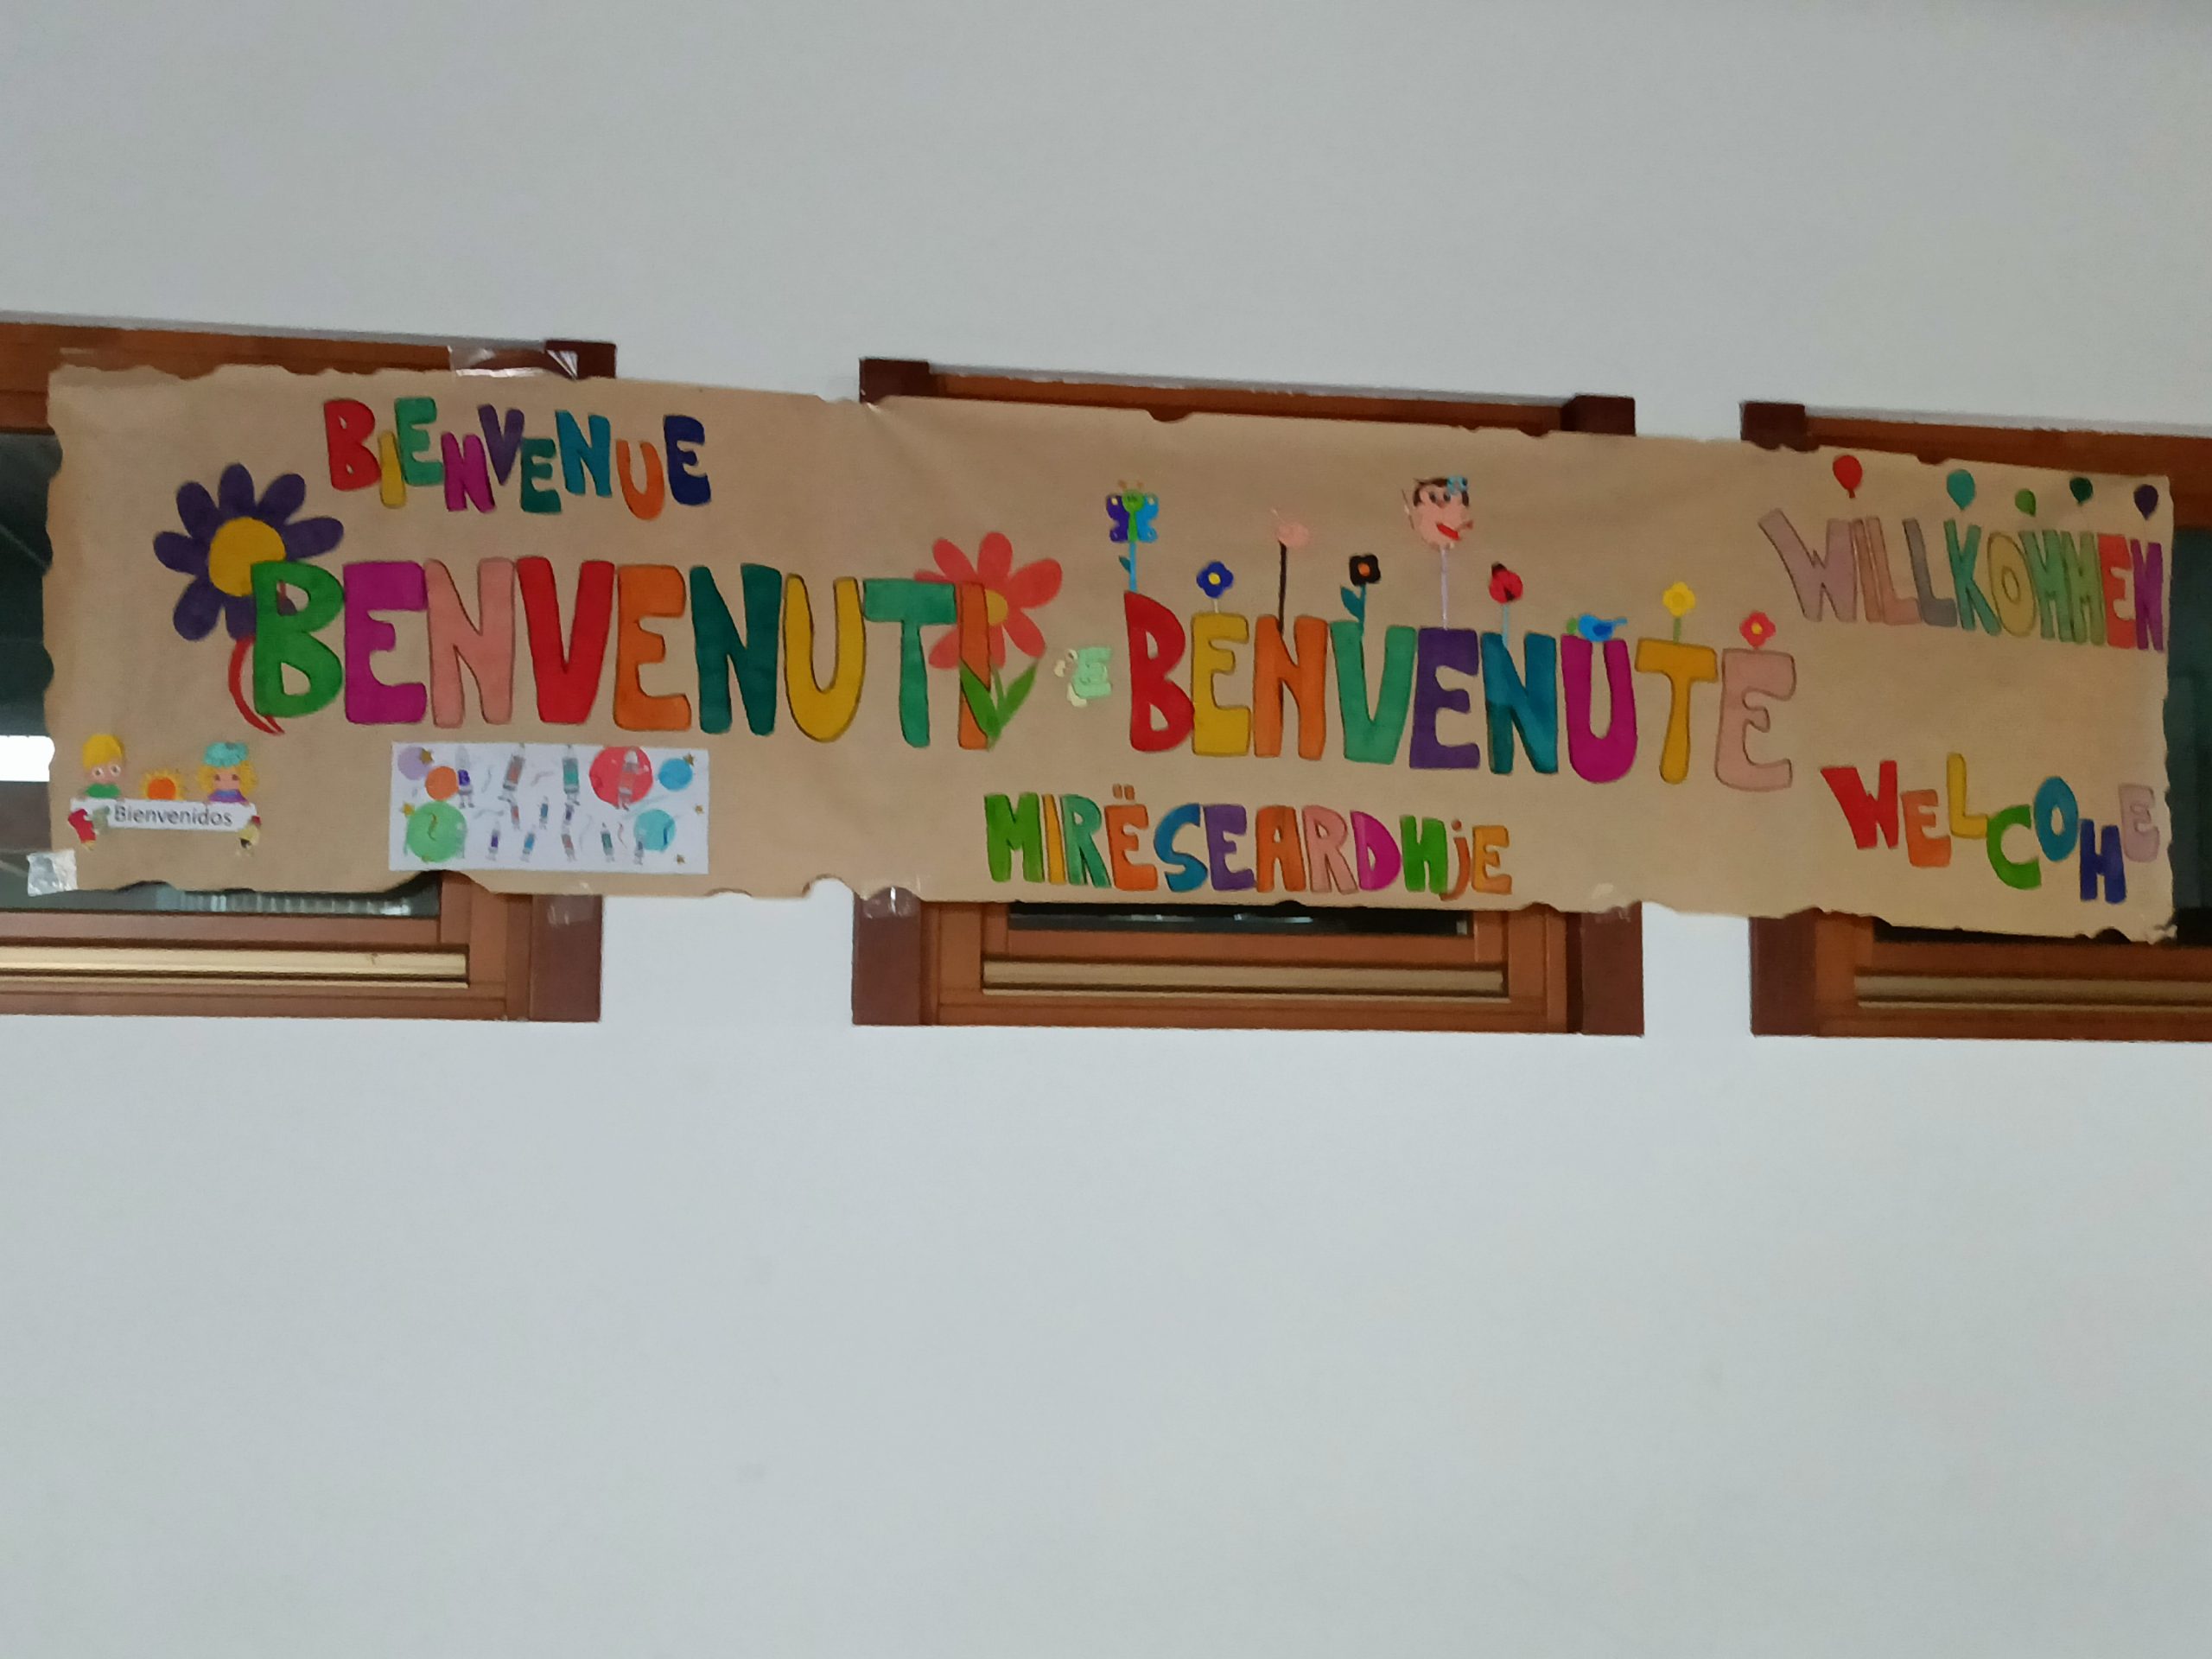 BIENVENUE
BENVENUTI E BENVENUTE
WILLKOMMEN
Bienvenidos
MIRËSEARDHjE
WELCOME